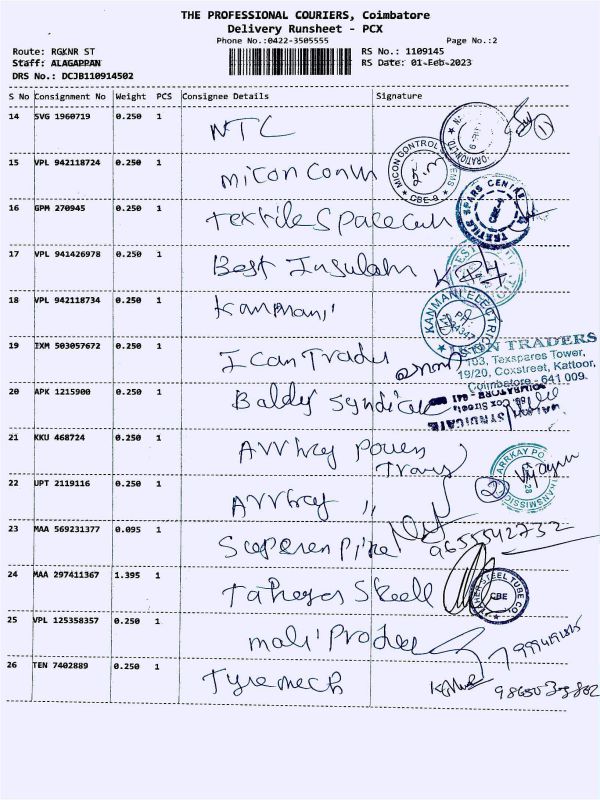 THE PROFESSIONAL COURIERS, Coimbatore
Delivery Runsheet - PCX
Phone No.:0422-3505555 Page No.:2
Route: RGKNR ST RS No.: 1109145
Staff: ALAGAPPAN RS Date: 01-Feb-2023
DRS No.: DCJB110914502
S No Consignment No Weight PCS Consignee Details Signature
14 SVG 1960719 0.250 1 NTC
15 VPL 942118724 0.250 1 MICON CONTROL SYSTEMS CBE-9
16 GPM 270945 0.250 1 Textile TEXTILE SPARS CENTRE CBE-9
17 VPL 941426978 0.250 1 Best Insulatn
18 VPL 942118734 0.250 1 Kanmani KANMANI ELECTRIC
19 IXM 503057672 0.250 1 Ican Trader TRADERS
103, Texspares Tower,
19/20, Coxstreet, Kattoor,
Coimbatore - 641 009.
20 APK 1215900 0.250 1 SYNDICATE
21 KKU 468724 0.250 1 Arrkay Power
Trans
22 UPT 2119116 0.250 1 Arrkay " 2 ARRKAY PO TRANSMISSIO
23 MAA 569231377 0.095 1 9655542732
24 MAA 297411367 1.395 1 Taher Steell TAHER STEEL TUBE CO. CBE
25 VPL 125358357 0.250 1
26 TEN 7402889 0.250 1 Tyremech